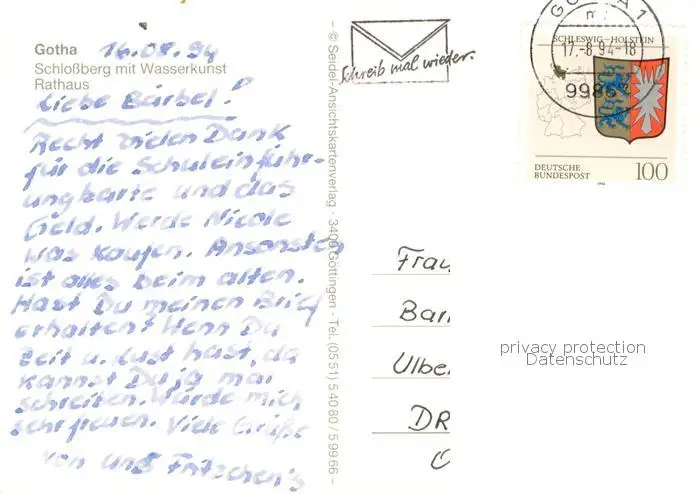 Gotha 16.08.94
Schloßberg mit Wasserkunst
Rathaus
Liebe Bärbel!
Recht vielen Dank
für die Schuleinführ-
ungkarte und das
Geld. Werde Nicole
was kaufen. Ansonsten
ist alles beim alten.
Hast Du meinen Brief
erhalten? Wenn Du
Zeit u. Lust hast, da
kannst Du ja mal
schreiben. Würde mich
sehr freuen. Viele Grüße
von uns Fritzchen's
– © Seidel-Ansichtskartenverlag · 3400 Göttingen · Tel. (0551) 54080/59966 –
Schreib mal wieder.
GOTHA 1
17.-8.94-18
9986
SCHLESWIG-HOLSTEIN
DEUTSCHE
BUNDESPOST
100
1994
Frau
Bar
Ulbe
DR
privacy protection
Datenschutz